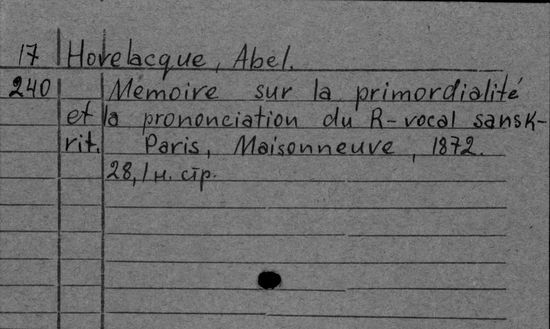 17 Hovelacque, Abel.
240 Mémoire sur la primordialité
et la prononciation du R-vocal sansk-
rit. Paris, Maisonneuve, 1872.
28, 1 н. стр.